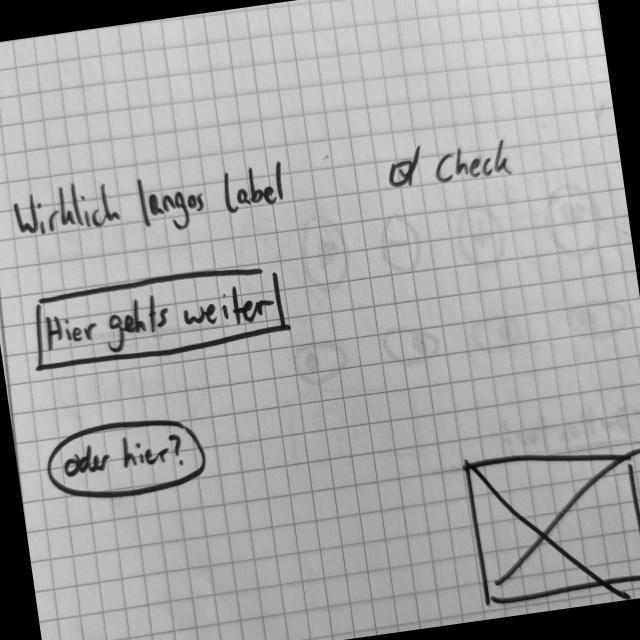 Wirklich langos Label
Check
Hier gehts weiter
oder hier?